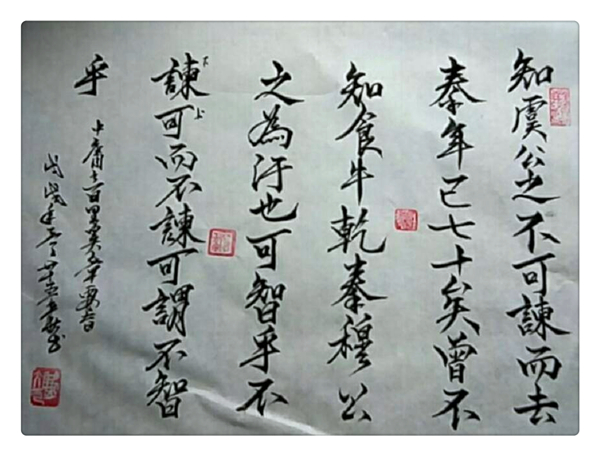 知虞公之不可諫而去
秦年已七十矣曾不
知食牛乾秦穆公
之為汙也可智乎不
諫可而不諫可謂不智
下上
乎
中庸百里奚